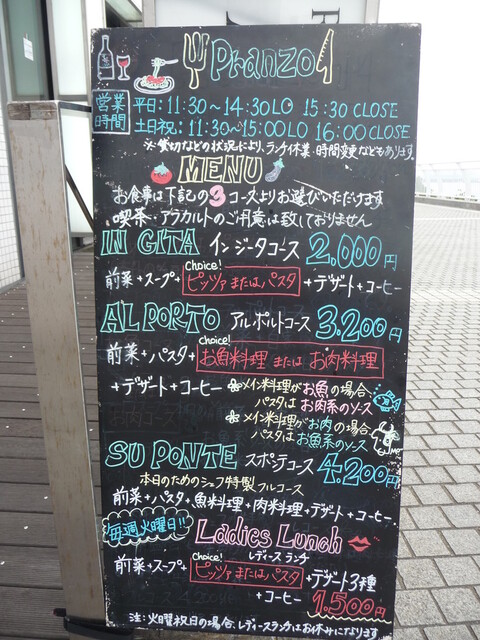 Pranzo
営業時間
平日:11:30~14:30LO 15:30 CLOSE
土日祝:11:30~15:00LO 16:00 CLOSE
※貸切などの状況により、ランチ休業・時間変更などもあります。
MENU
お食事は下記の3コースよりお選びいただけます
喫茶・アラカルトのご用意は致しておりません
IN GITA インジータコース 2.000円
Choice!
前菜+スープ+ピッツァまたはパスタ+デザート+コーヒー
AL PORTO アルポルトコース 3.200円
Choice!
前菜+パスタ+お魚料理 または お肉料理
+デザート+コーヒー ※メイン料理がお魚の場合、
パスタはお肉系のソース
※メイン料理がお肉の場合、
パスタはお魚系のソース
SU PONTE スポンテコース 4.200円
本日のためのシェフ特製フルコース
前菜+パスタ+魚料理+肉料理+デザート+コーヒー
毎週火曜日!! Ladies Lunch
レディースランチ
Choice!
前菜+スープ+ピッツァまたはパスタ+デザート3種
+コーヒー 1.500円
注:火曜祝日の場合、レディースランチはお休みになります